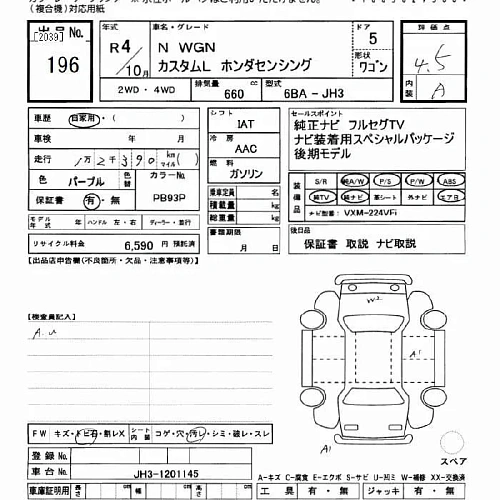 (複合機)対応用紙
出品No. [2039] 196
年式 R4/10月
車名・グレード N WGN
カスタムL ホンダセンシング
ドア 5
形状 ワゴン
評価点 4.5
内装 A
2WD・4WD
排気量 660 cc
型式 6BA-JH3
車歴 自家用・
車検 年 月
走行 12390 km マイル
色 パープル
色替
カラーNo. PB93P
保証書 有・無
モデル年式 年 ハンドル 左・右 ディーラー・並行
リサイクル料金 6,590 円 預託済
シフト IAT
冷房 AAC
燃料 ガソリン
乗車定員 名
積載量 kg
総重量 kg
書類期限 月 日
セールスポイント
純正ナビ フルセグTV
ナビ装着用スペシャルパッケージ
後期モデル
装備品 S/R 純A/W P/S P/W ABS
純TV 純ナビ 革シート 外ナビ エアB
ナビ型番: VXM-224VFi
後日品
保証書 取説 ナビ取説
[出品店申告欄(不良箇所・欠品・注意事項等)]
[検査員記入]
A.u
W2
A1
A1
FW キズ・トビ石・割レX
シート内装 コゲ・穴・汚レ・シミ・破レ・スレ
登録No.
車台No. JH3-1201145
車庫証明用 長さ cm 幅 cm 高さ cm
スペア
A-キズ C-腐食 E-エクボ S-サビ U-凹ミ W-補修 XX-交換
工具 有・無 ジャッキ 有・無